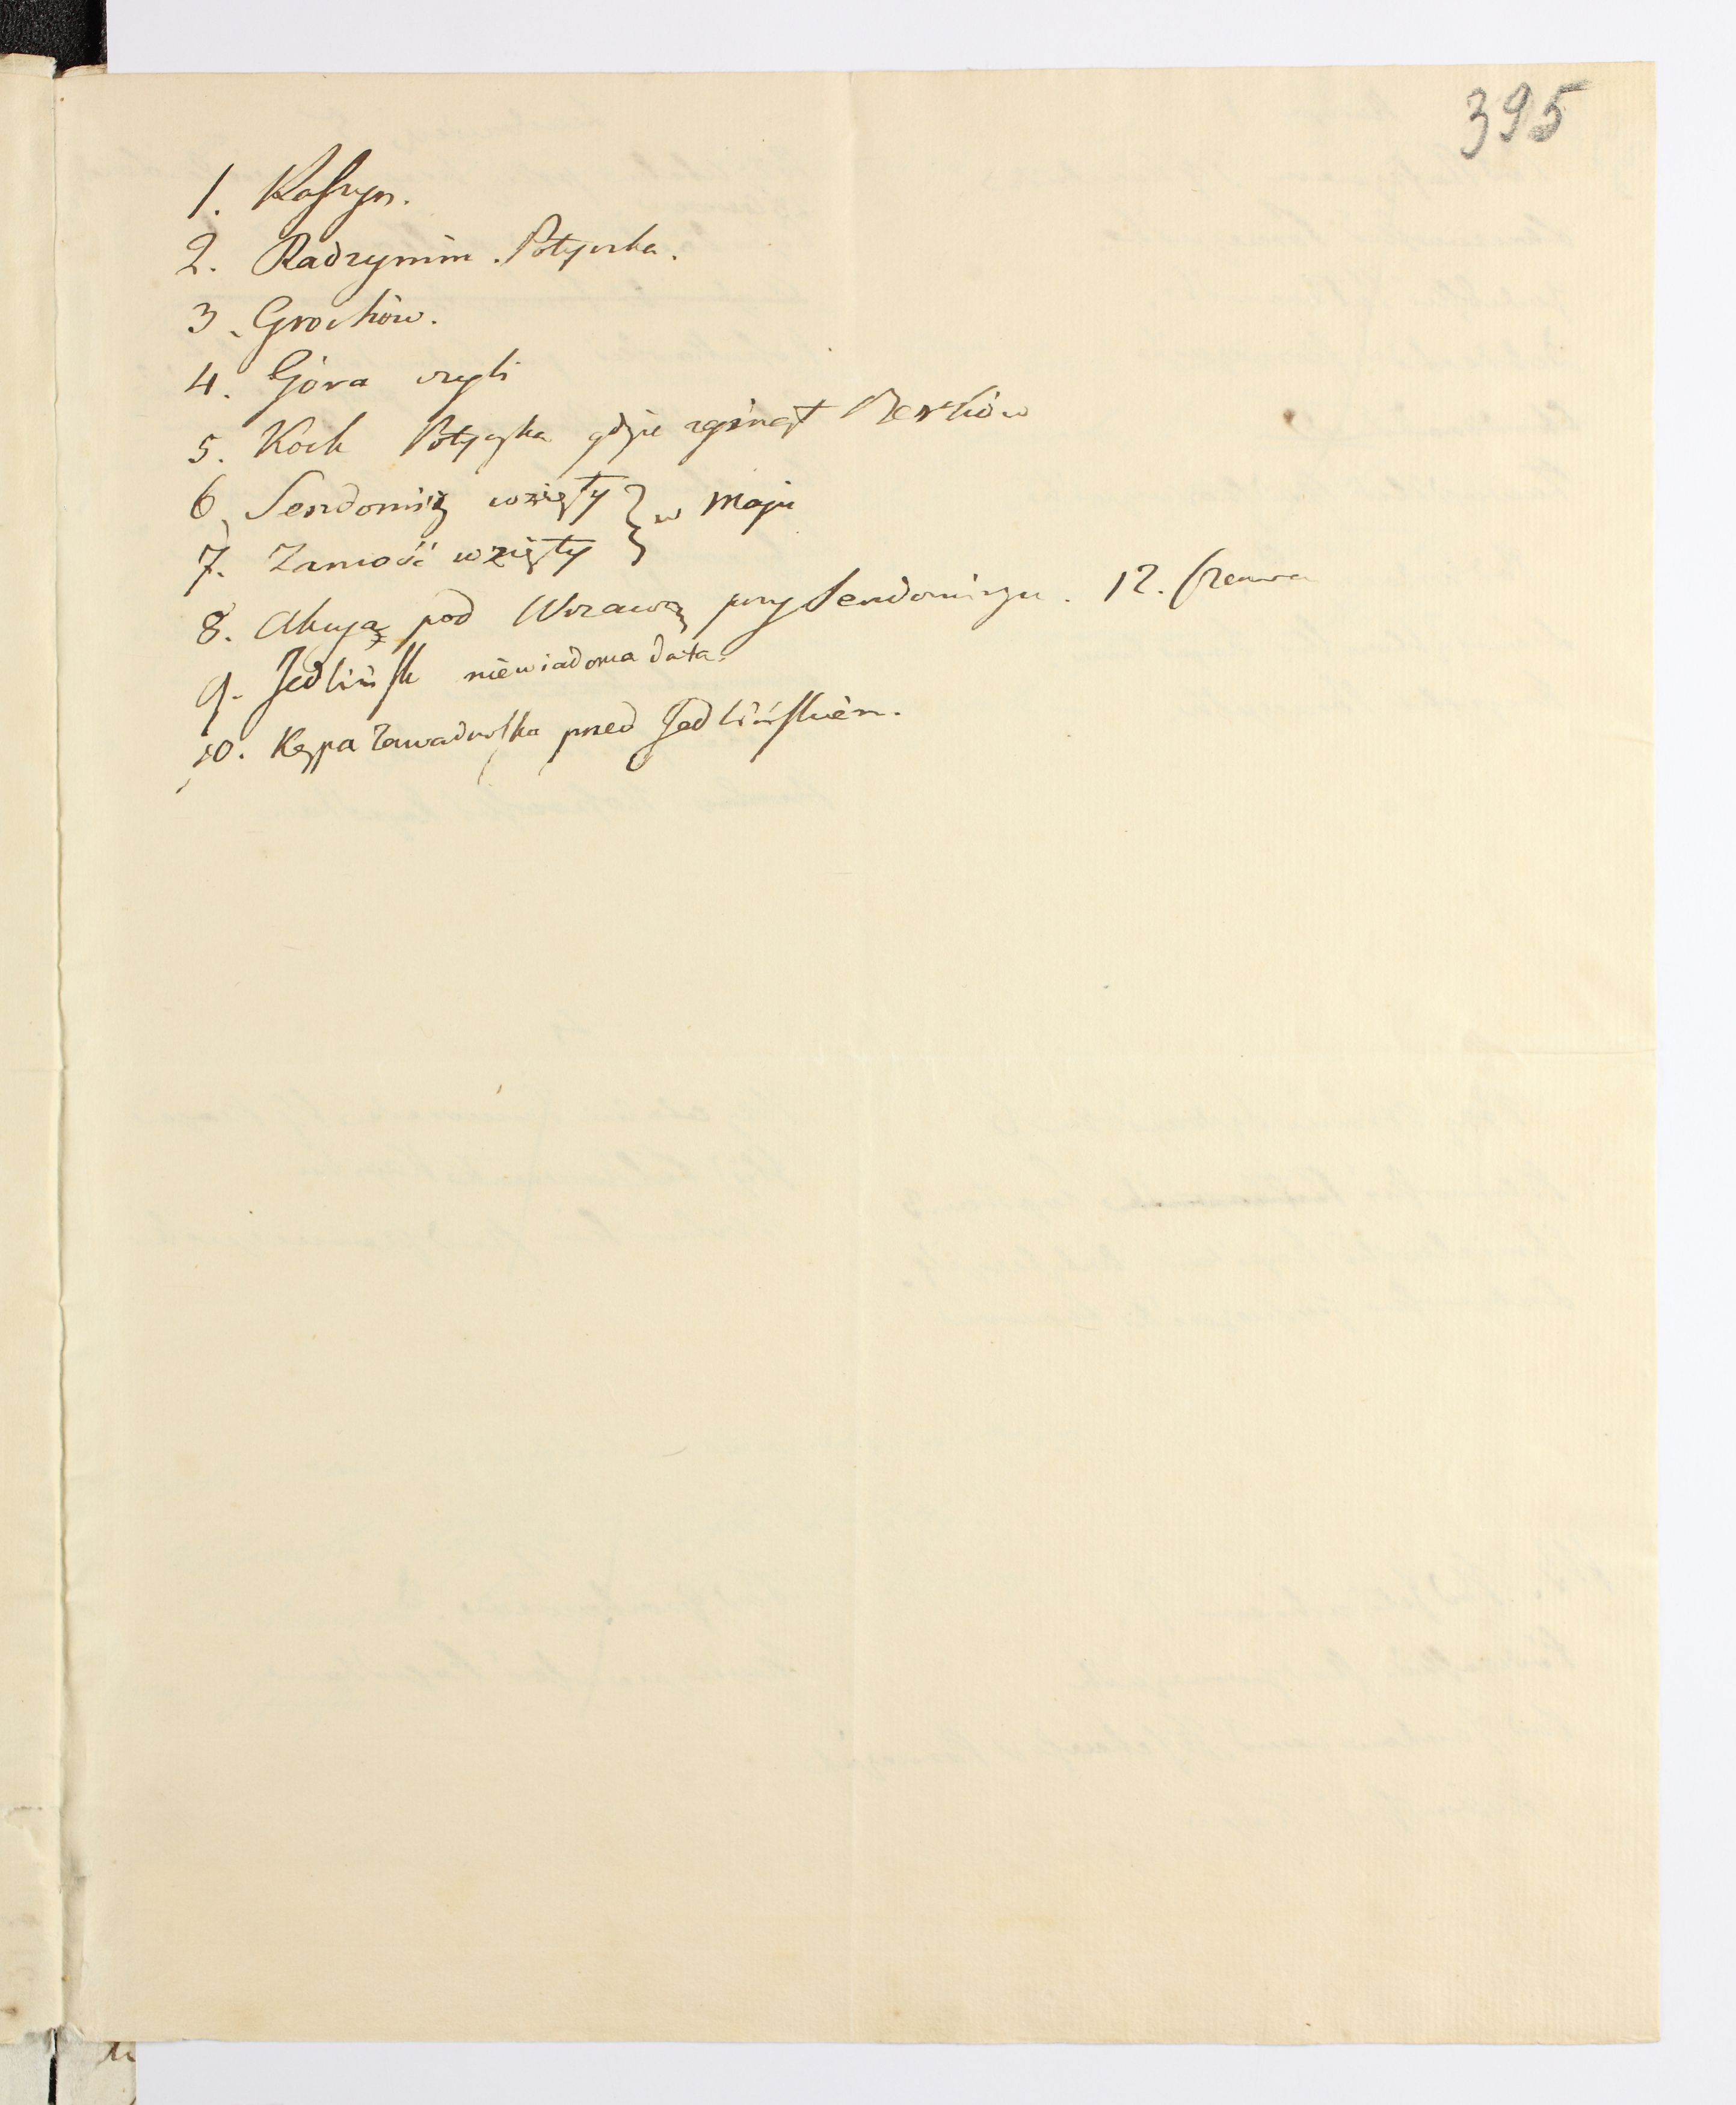 395
1. Raszyn.
2. Radzymin. Potyczka.
3. Grochów.
4. Góra czyli
5. Kock Potyczka gdzie zginął Berków
6. Sendomiż wzięty } w Maju
7. Zamość wzięty
8. Akcya pod Wrzawą przy Sendomirzu. 12. Czerwca
9. Jedlińsk niewiadoma data.
10. Kępa Zawadowska przed Jedlińskiem.